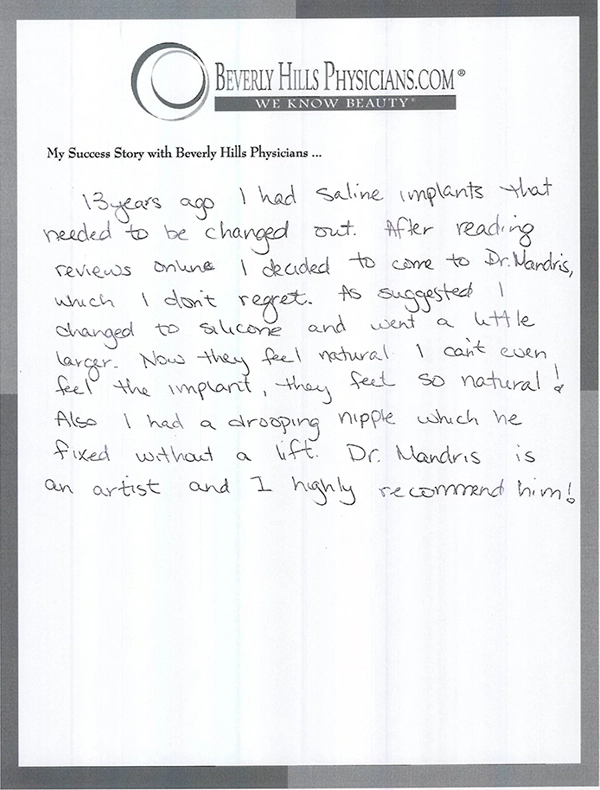 BEVERLY HILLS PHYSICIANS.COM®
WE KNOW BEAUTY®
My Success Story with Beverly Hills Physicians ...
13 years ago I had saline implants that
needed to be changed out. After reading
reviews online I decided to come to Dr. Mandris,
which I don't regret. As suggested I
changed to silicone and went a little
larger. Now they feel natural I can't even
feel the implant, they feel so natural!
Also I had a drooping nipple which he
fixed without a lift. Dr. Mandris is
an artist and I highly recommend him!